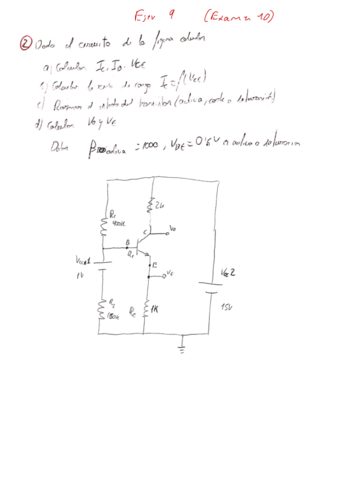 Ejer 9 (Examen 10)
2 Dado el circuito de la figura calcular
a) Calcular Ic, IB, VCE
c) Calcular la recta de carga Ic = f(VCE)
c) Razonar el estado del transistor (activa, corte o saturación)
d) Calcular Vo y VE
Datos βactiva = 1000, VBE = 0'6V activa o saturacion
R1
400K
2K
C
Vo
B
Q1
E
VE
1V
R2
100K
RE
1K
15V